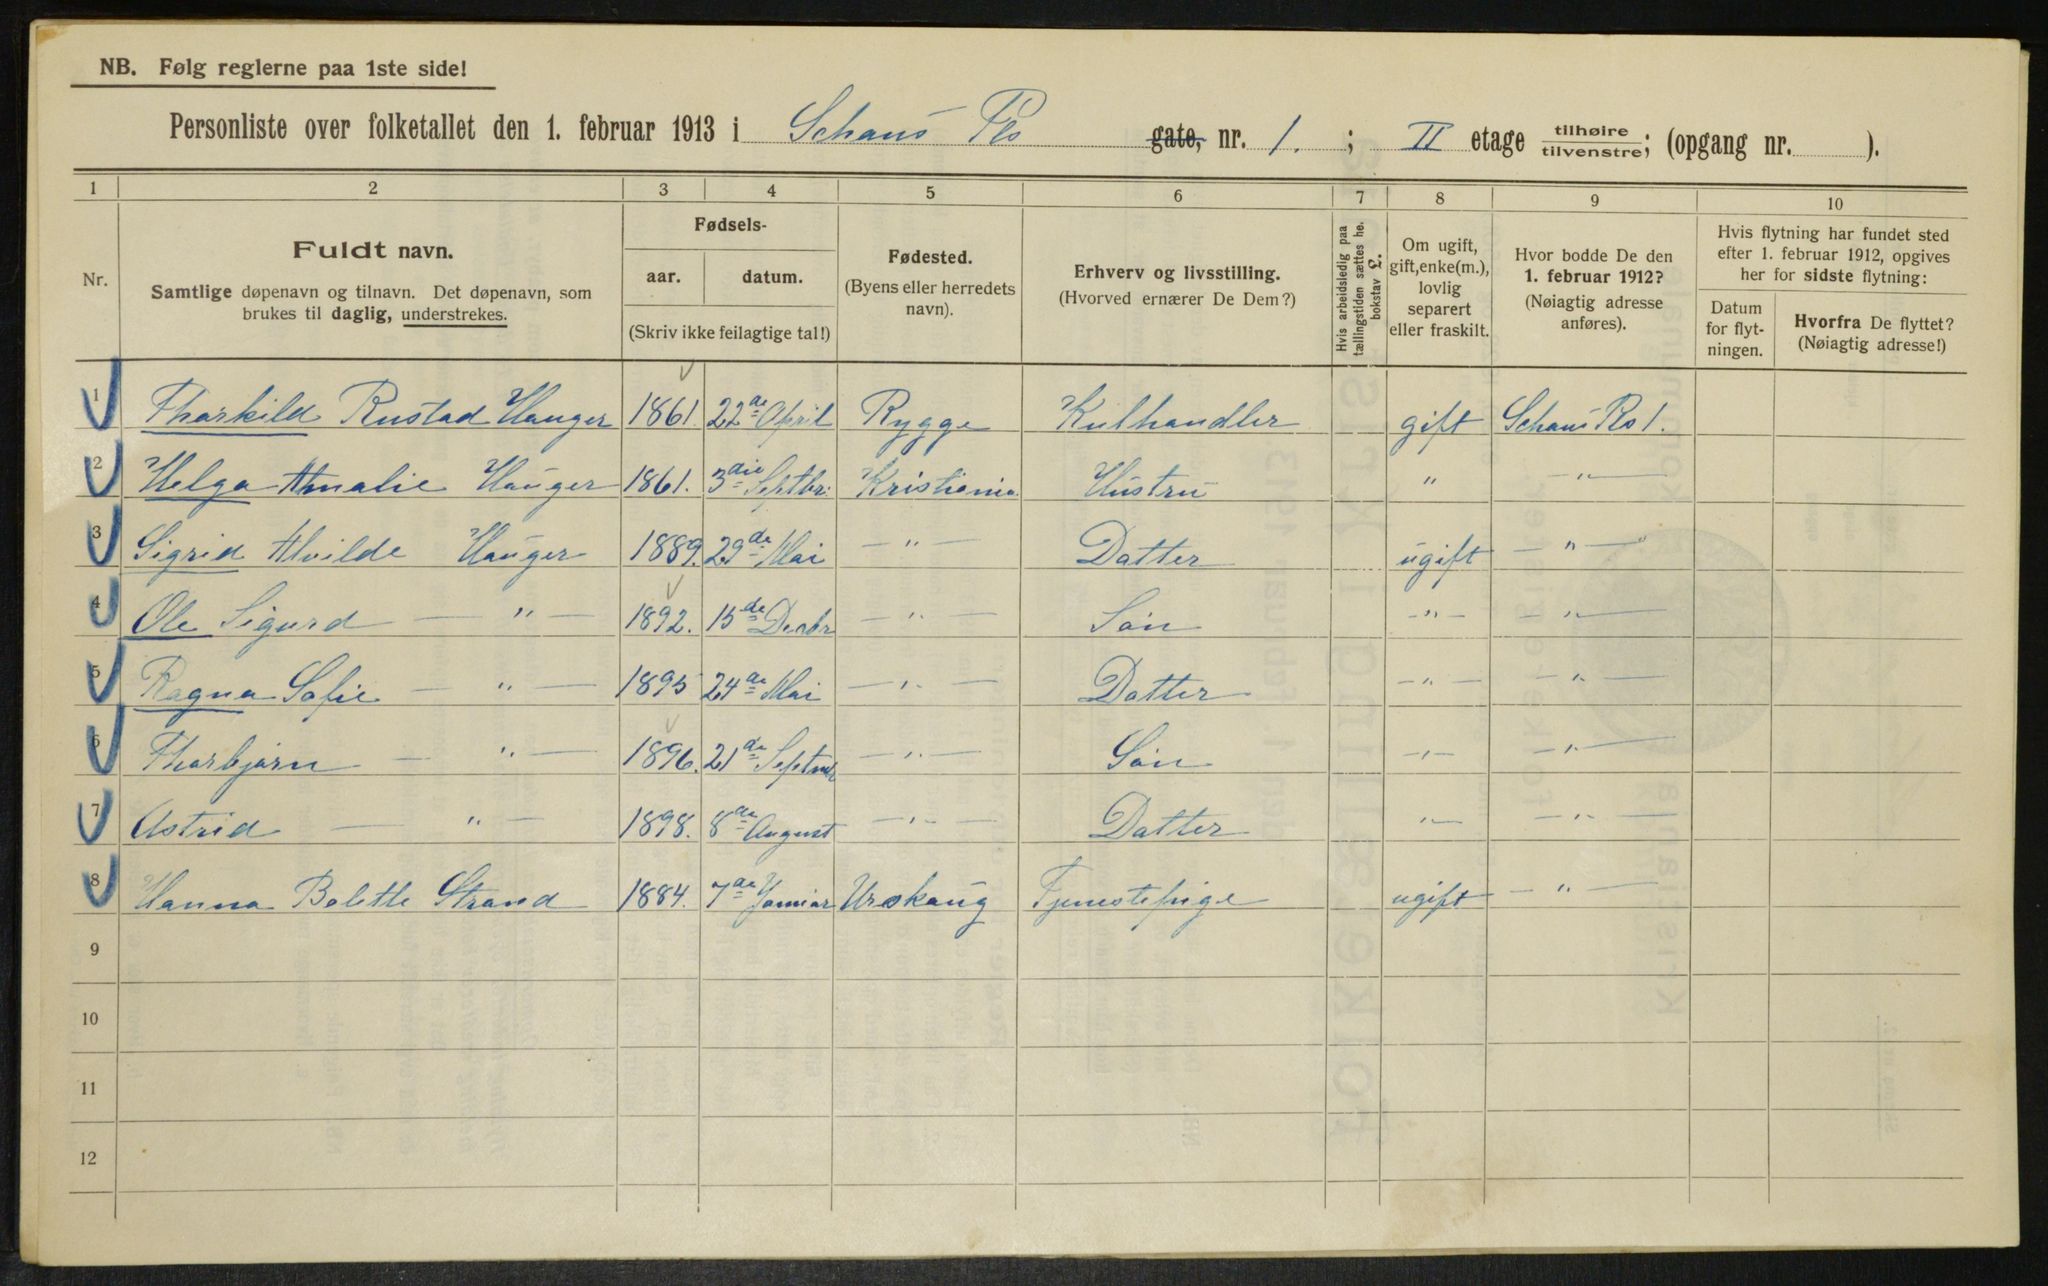 NB. Følg reglerne paa 1ste side!
Personliste over folketallet den 1. februar 1913 i Schaus Pls gate, nr. 1. ; II etage tilhøire tilvenstre; (opgang nr. ).
1 2 3 4 5 6 7 8 9 10
Nr.
Fuldt navn.
Samtlige døpenavn og tilnavn. Det døpenavn, som
brukes til daglig, understrekes.
Fødsels-
aar. datum.
(Skriv ikke feilagtige tal!)
Fødested.
(Byens eller herredets
navn).
Erhverv og livsstilling.
(Hvorved ernærer De Dem?)
Hvis arbeidsledig paa
tællingstiden sættes her
bokstav L.
Om ugift,
gift, enke(m.),
lovlig
separert
eller fraskilt.
Hvor bodde De den
1. februar 1912?
(Nøiagtig adresse
anføres).
Hvis flytning har fundet sted
efter 1. februar 1912, opgives
her for sidste flytning:
Datum
for flyt-
ningen.
Hvorfra De flyttet?
(Nøiagtig adresse!)
1 Thorkild Rustad Hauger 1861. 22de April Rygge Kulhandler gift Schaus Pls 1.
2 Helga Amalie Hauger 1861. 3die Septbr. Kristiania Hustru " — " —
3 Sigrid Alvilde Hauger 1889. 29de Mai — " — Datter ugift — " —
4 Ole Sigurd — " — 1892. 15de Decbr — " — Søn — " — — " —
5 Ragna Sofie — " — 1895 24de Mai — " — Datter — " — — " —
6 Thorbjørn — " — 1896. 21de Septmbr — " — Søn — " — — " —
7 Astrid — " — 1898. 8de August — " — Datter — " — — " —
8 Hanna Bolette Strand 1884. 7de Januar Urskaug Tjenestepige ugift — " —
9
10
11
12